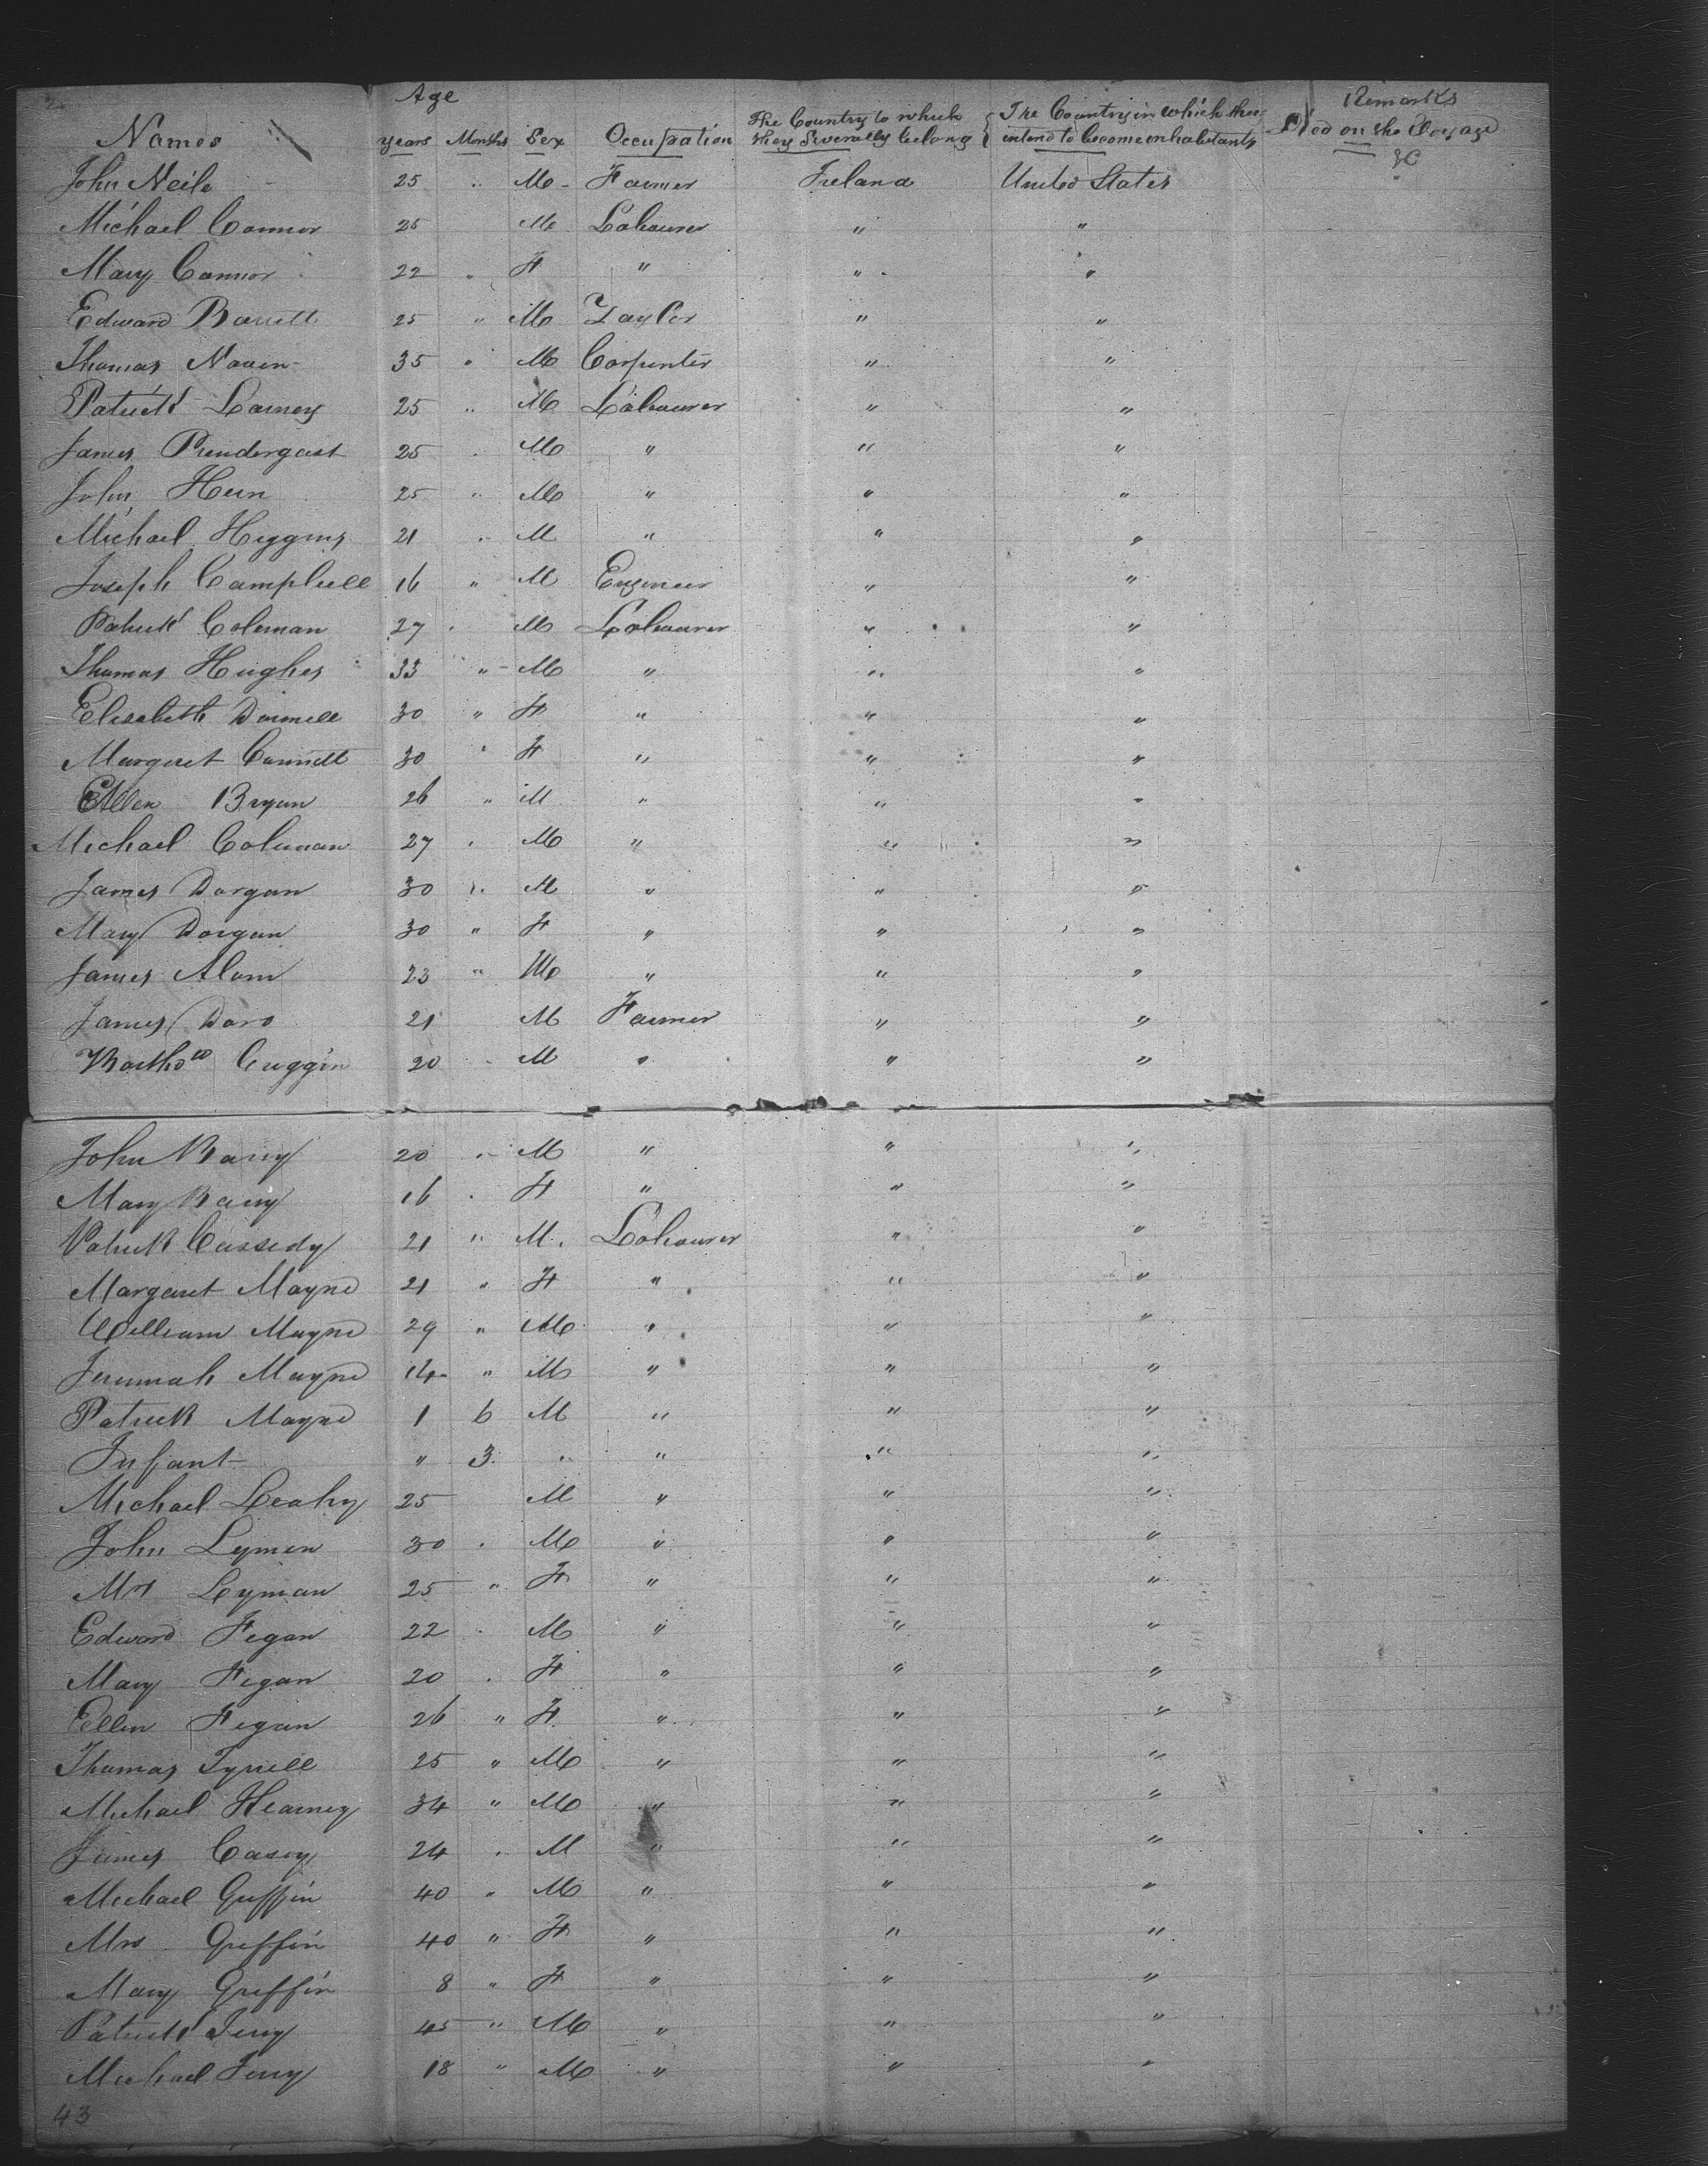 2
Age
Names years Months Sex Occupation The Country to which they Severally belong The Country in which they intend to become inhabitants Remarks Died on the Voyage &c
John Neile 25 " M Farmer Ireland United States
Michael Connor 25 M Labourer " "
Mary Connor 22 " F " " "
Edward Barrett 25 " M Taylor " "
Thomas Naven 35 " M Carpenter " "
Patrick Larney 25 " M Labourer " "
James Prendergast 25 " M " " "
John Hern 25 " M " " "
Michael Higgins 21 " M " " "
Joseph Campbell 16 " M Engineer " "
Patrick Coleman 27 " M Labourer " "
Thomas Hughes 33 " M " " "
Elisabeth 30 " F " " "
Margaret 30 " F " " "
Ellen Bryan 26 " M " " "
Michael Coleman 27 " M " " "
James Dorgan 30 " M " " "
Mary Dorgan 30 " F " " "
James 23 " M " " "
James 21 M Farmer " "
Bartho^w Cuggin 20 " M " " "
John Barry 20 " M " " "
Mary Barry 16 " F " " "
Patrick Cassedy 21 " M Labourer " "
Margaret Mayne 21 " F " " "
William Mayne 29 " M " " "
Jeremiah Mayne 14 " M " " "
Patrick Mayne 1 6 M " " "
Infant " 3 " " " "
Michael Leahy 25 M " " "
John Lymen 30 " M " " "
Mrs Lyman 25 " F " " "
Edward Fegan 22 " M " " "
Mary Fegan 20 " F " " "
Ellen Fegan 26 " F " " "
Thomas Tyrrell 25 " M " " "
Michael Hearney 34 " M " " "
James Casey 24 " M " " "
Michael Griffin 40 " M " " "
Mrs Griffin 40 " F " " "
Mary Griffin 8 " F " " "
Patrick 45 " M " " "
Michael 18 " M " " "
43